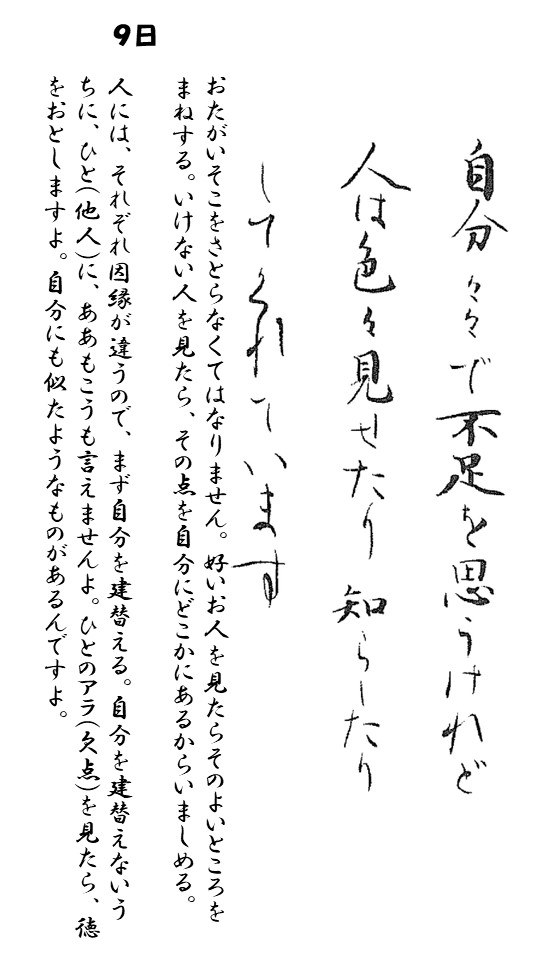 9日
自分々々で不足を思うけれど
人は色々見せたり知らしたり
してくれています
おたがいそこをさとらなくてはなりません。好いお人を見たらそのよいところを
まねする。いけない人を見たら、その点を自分にどこかにあるからいましめる。
人には、それぞれ因縁が違うので、まず自分を建替える。自分を建替えないう
ちに、ひと(他人)に、ああもこうも言えませんよ。ひとのアラ(欠点)を見たら、徳
をおとしますよ。自分にも似たようなものがあるんですよ。